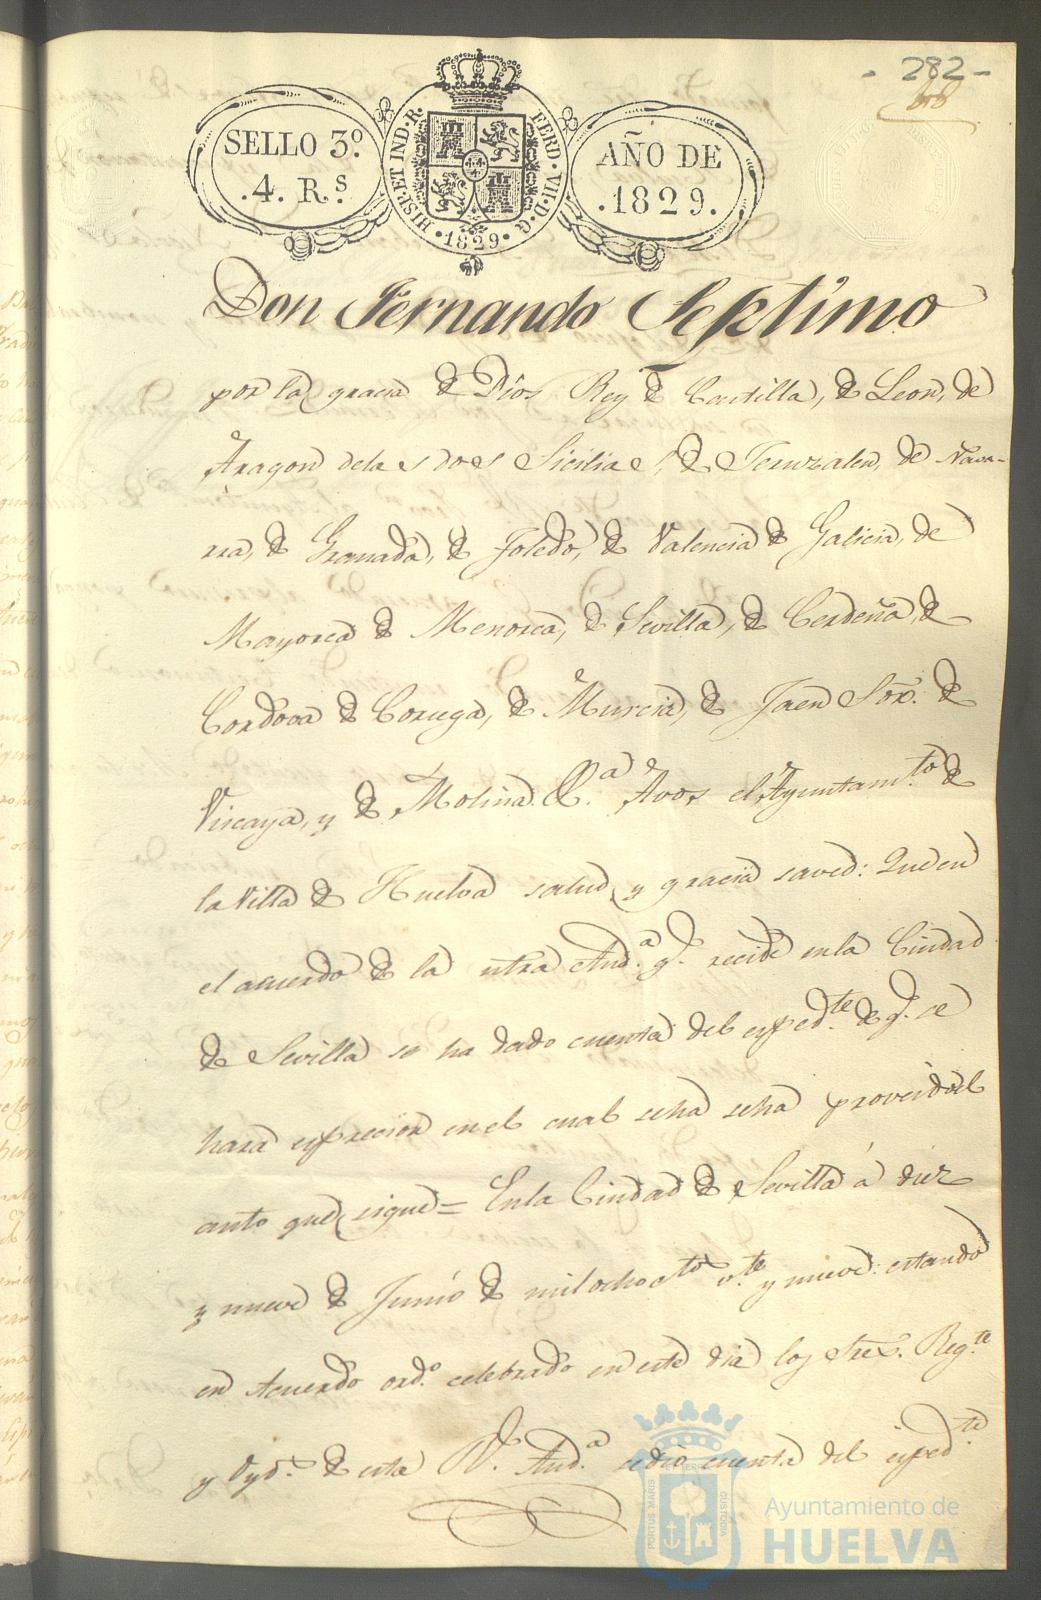 - 282 -
SELLO 3º.
.4. R.s
HISP. ET IND. R. FERD. VII. D. G.
·1829·
AÑO DE
.1829.
Don Fernando Septimo
por la gracia de Dios Rey de Castilla, de Leon, de
Aragon delas dos Sicilias, de Jeruzalen, de Navar-
rra, de Granada, de Toledo, de Valencia de Galicia, de
Mayorca de Menorca, de Sevilla, de Cerdeña, de
Cordova de Corcega, de Murcia, de Jaen Sor. de
Viscaya, y de Molina &.a Avos el Ayuntam.to de
la Villa de Huelva salud y gracia saved: Que en
el acuerdo de la ntra Aud.a q.e recide en la Ciudad
de Sevilla se ha dado cuenta del exped.te de q.e se
hara exprecion en el cual seha seha proveido el
auto que sigue = En la Ciudad de Sevilla á diez
y nueve de Junio de mil ochoc.tos v.te y nueve: estando
en Acuerdo ord.o celebrado en este dia los Sres. Reg.te
y Oyd.s de esta R.l Aud.a se dio cuenta del exped.te
PORTUS MARIS ET TERRAE CUSTODIA
Ayuntamiento de
HUELVA